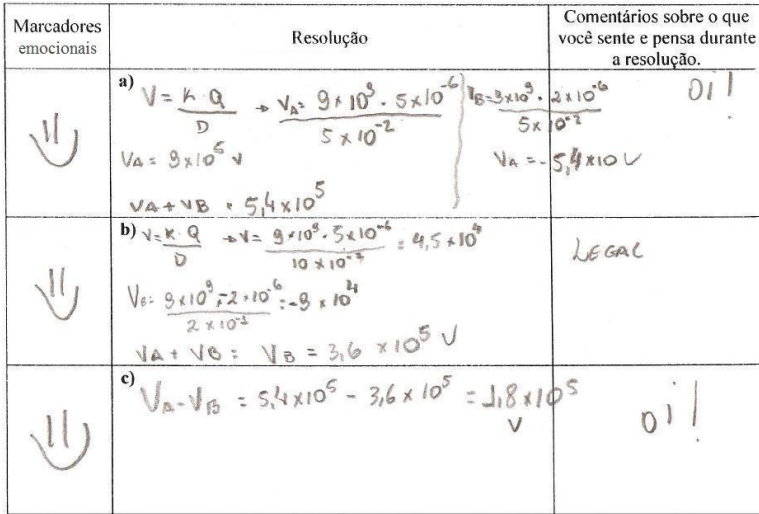 Marcadores emocionais
Resolução
Comentários sobre o que você sente e pensa durante a resolução.
a) V = K Q / D → VA = 9×10⁹ · 5×10⁻⁶ / 5×10⁻² VB = 9×10⁹ · 2×10⁻⁶ / 5×10⁻² OI!
VA = 9×10⁵ V VA = -5,4×10 V
VA + VB = 5,4×10⁵
b) V = K Q / D → V = 9×10⁹ · 5×10⁻⁶ / 10×10⁻² = 4,5×10⁴ LEGAL
VB = 9×10⁹ · -2×10⁻⁶ / 2×10⁻¹ = -9×10⁴
VA + VB = VB = 3,6 ×10⁵ V
c) VA - VB = 5,4×10⁵ - 3,6×10⁵ = 1,8×10⁵ V oi!